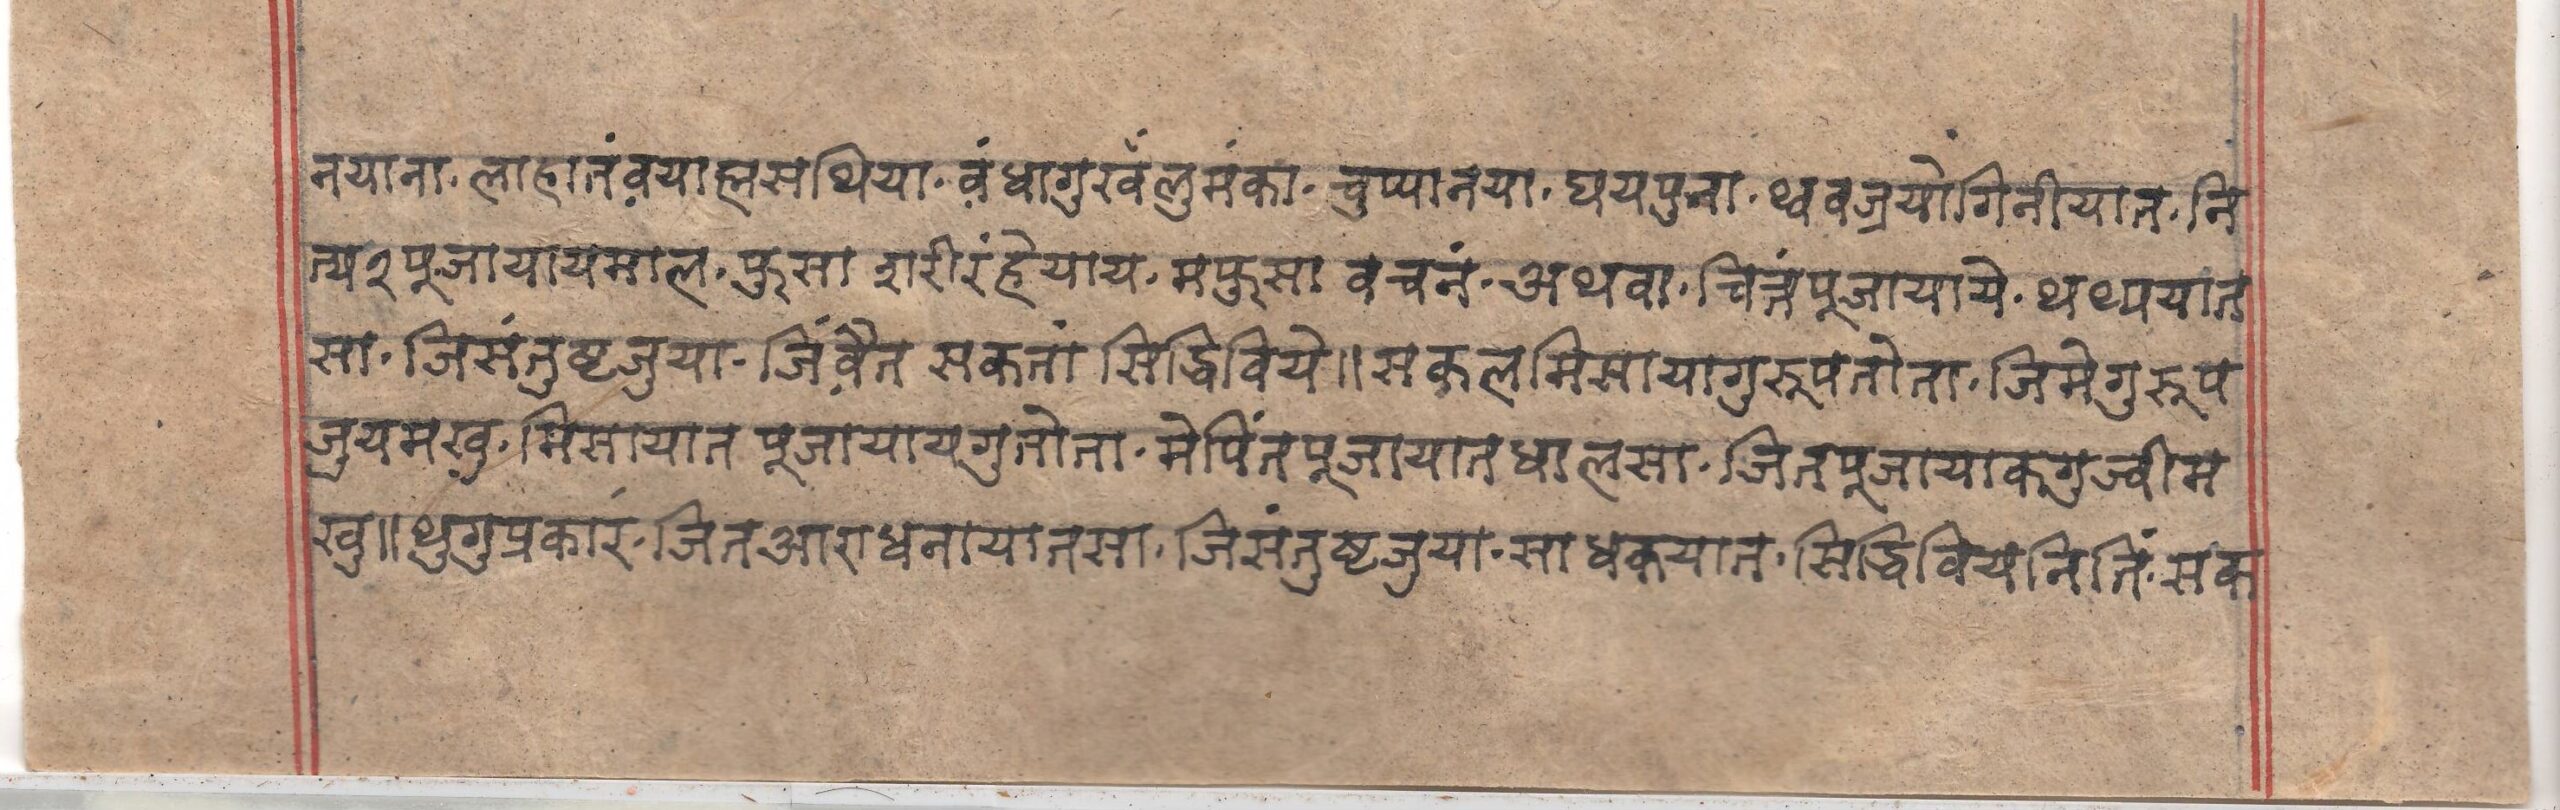 नयाना· लाहातं व़याह्मसथिया· व़ंधागुखँलुमंका· चुप्पानया· घयपुना· थ्ववज्रयोगिनीयात· नि
त्य२पूजायायमाल· फुसा शरीरंहेयाय· मफुसा वचनं· अथवा· चित्तंपूजायाये· थथ्ययात
सा· जिसंतुष्टजुया· जिंव़ैत सकतां सिद्धिविये॥सकलमिसायागुरूपतोता· जिमेगुरूप
जुयमखु· मिसायात पूजायायगुतोता· मेपिंतपूजायातधालसा· जितपूजायाकगुज्वीम
खु॥थुगुप्रकारं· जितआराधनायातसा· जिसंतुष्टजुया· साधकयात· सिद्धिवियनितिं· सक